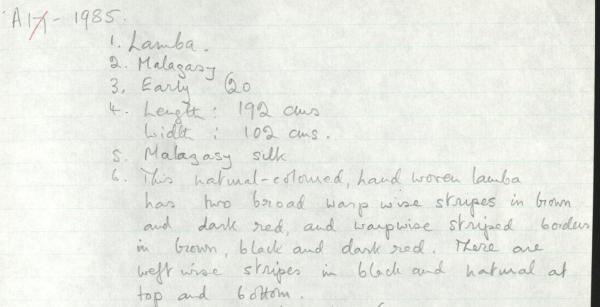 A17 - 1985.
1. Lamba.
2. Malagasy
3. Early C20
4. Length : 192 cms
Width : 102 cms.
5. Malagasy silk
6. This natural-coloured, hand woven lamba
has two broad warp wise stripes in brown
and dark red, and warpwise striped borders
in brown, black and dark red. There are
weft wise stripes in black and natural at
top and bottom.